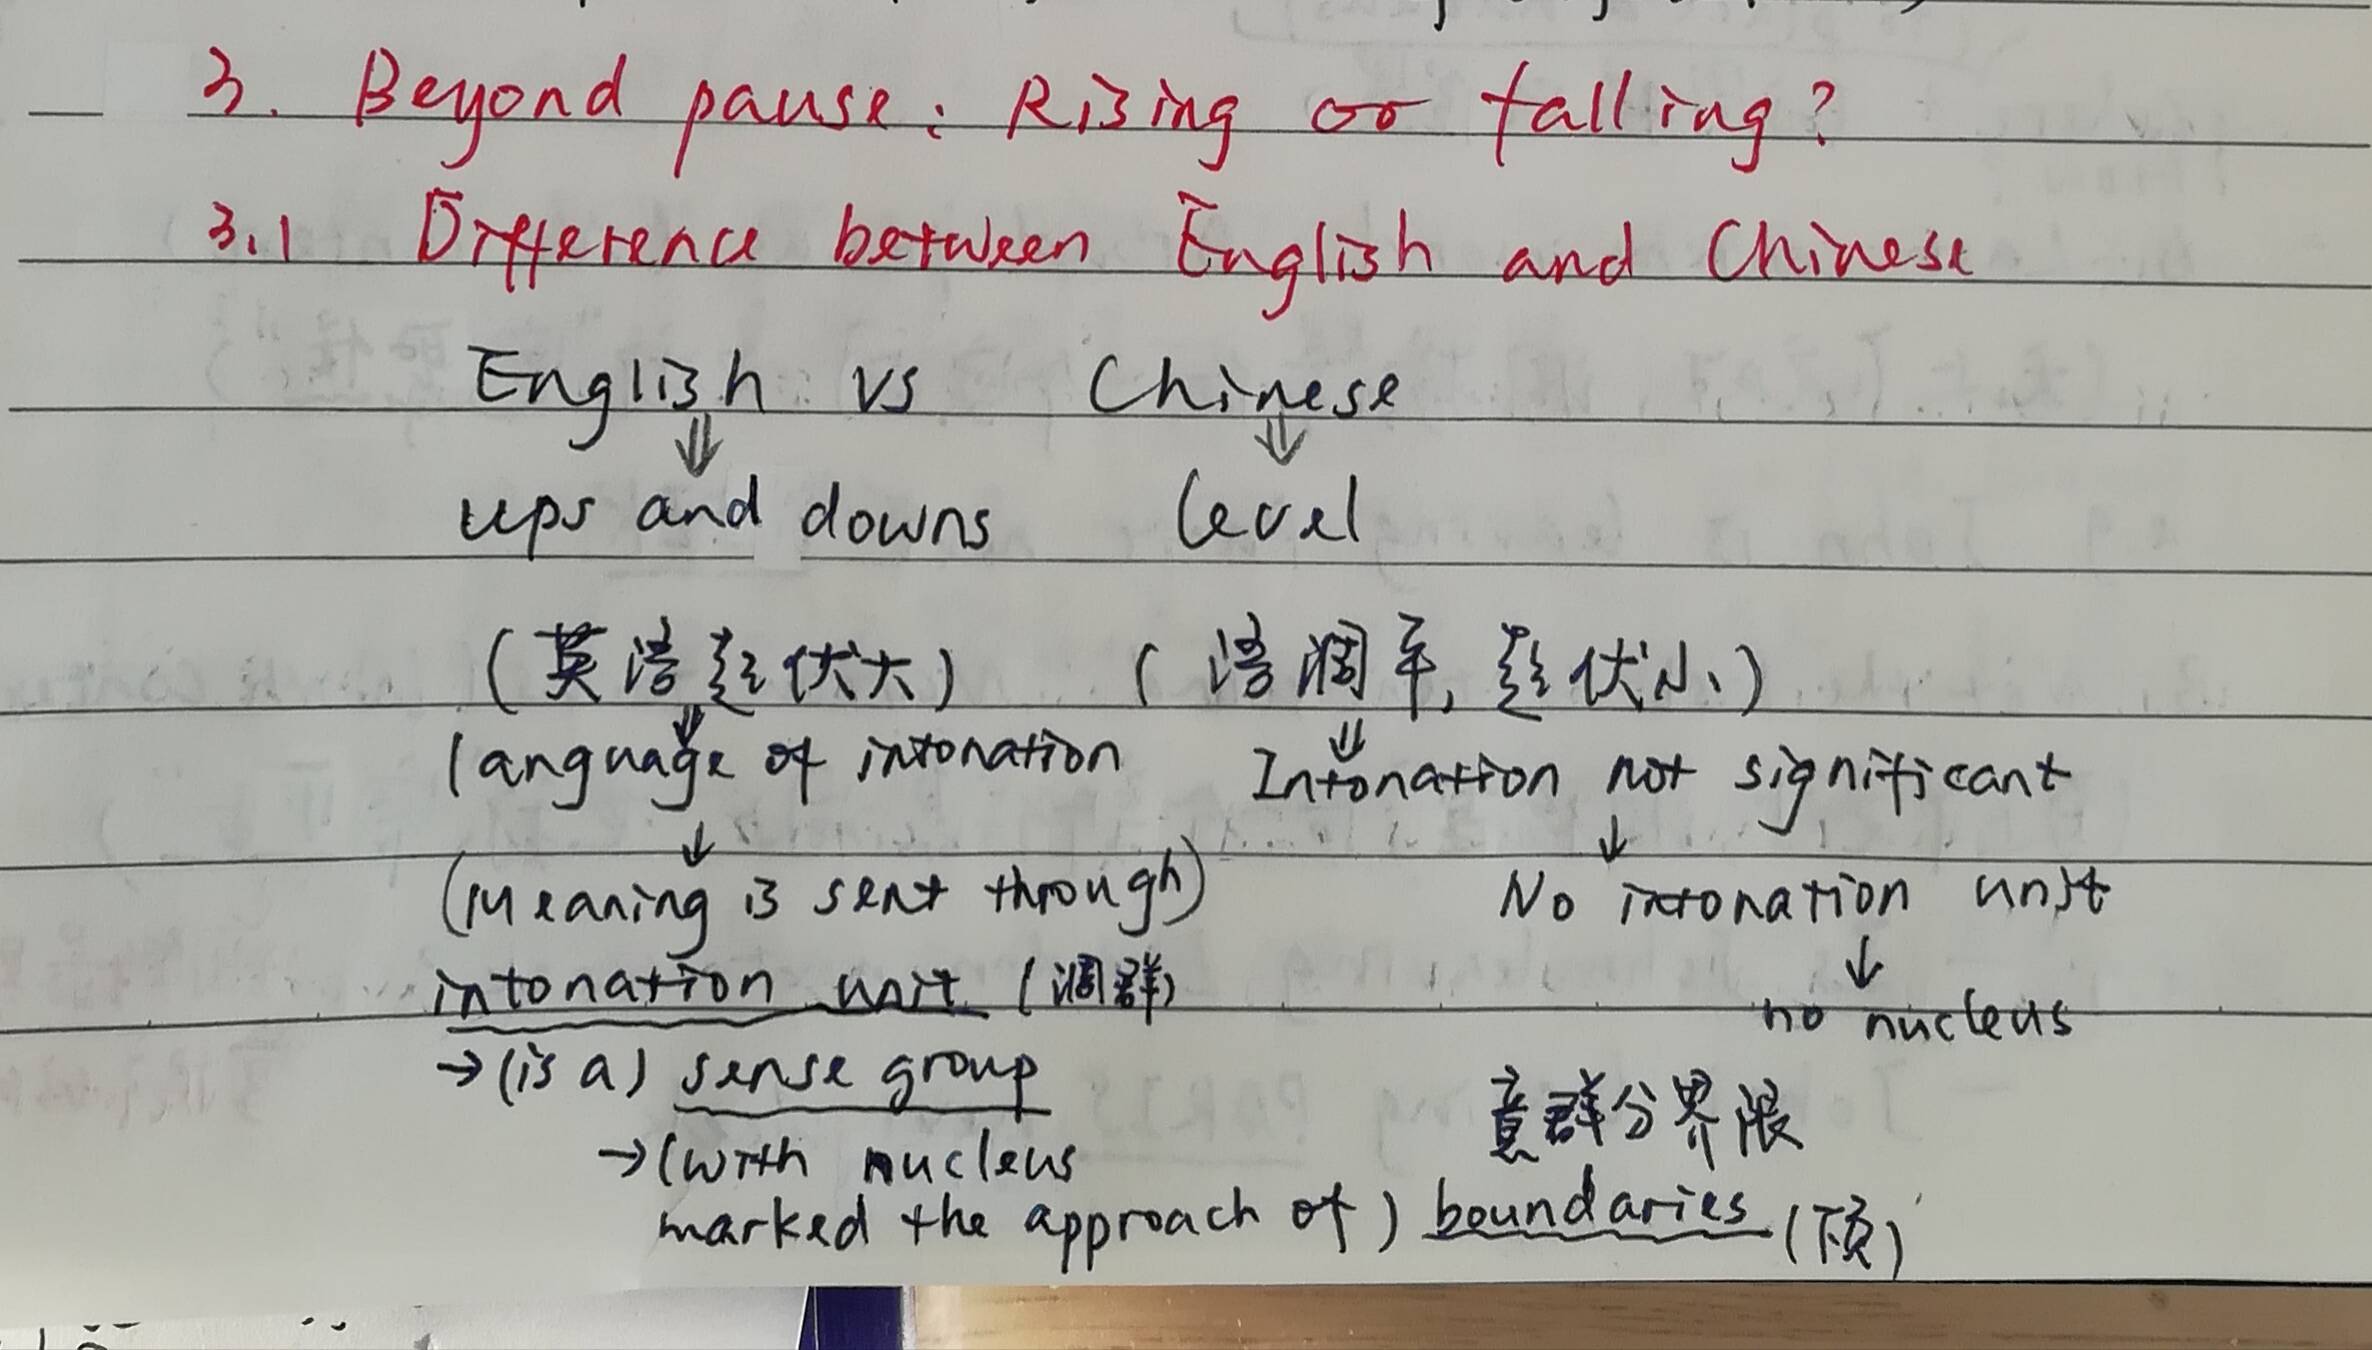 3. Beyond pause: Rising or falling?
3.1 Difference between English and Chinese
English vs Chinese
⇓ ⇓
ups and downs level
(英语起伏大) (语调平, 起伏小)
⇓ ⇓
language of intonation Intonation not significant
↓ ↓
(Meaning is sent through) No intonation unit
↓
intonation unit (调群)
no nucleus
→(is a) sense group
意群分界限
→(with nucleus
marked the approach of) boundaries (下页)